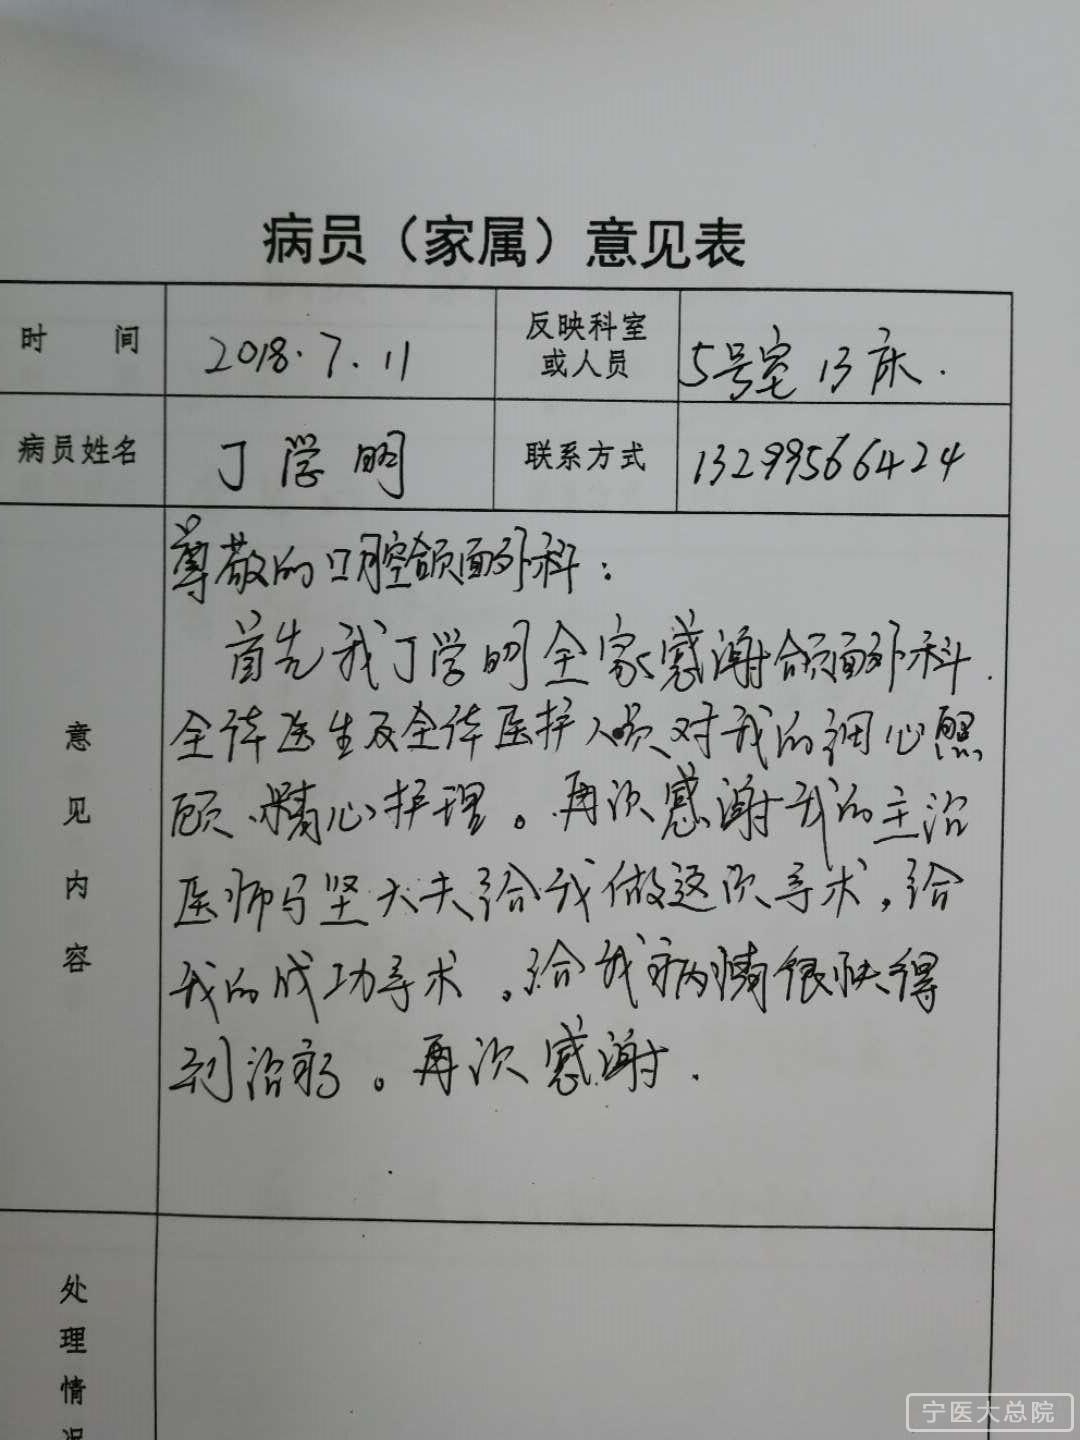 病员（家属）意见表
时 间 2018.7.11 反映科室或人员 5号室 13床.
病员姓名 丁学明 联系方式 13299566424
意见内容
尊敬的口腔颌面外科：
首先我丁学明全家感谢颌面外科.
全体医生及全体医护人员对我的细心照
顾、精心护理。再次感谢我的主治
医师马坚大夫给我做这次手术，给
我的成功手术，给我病情很快得
到治疗。再次感谢.
处理情况
宁医大总院